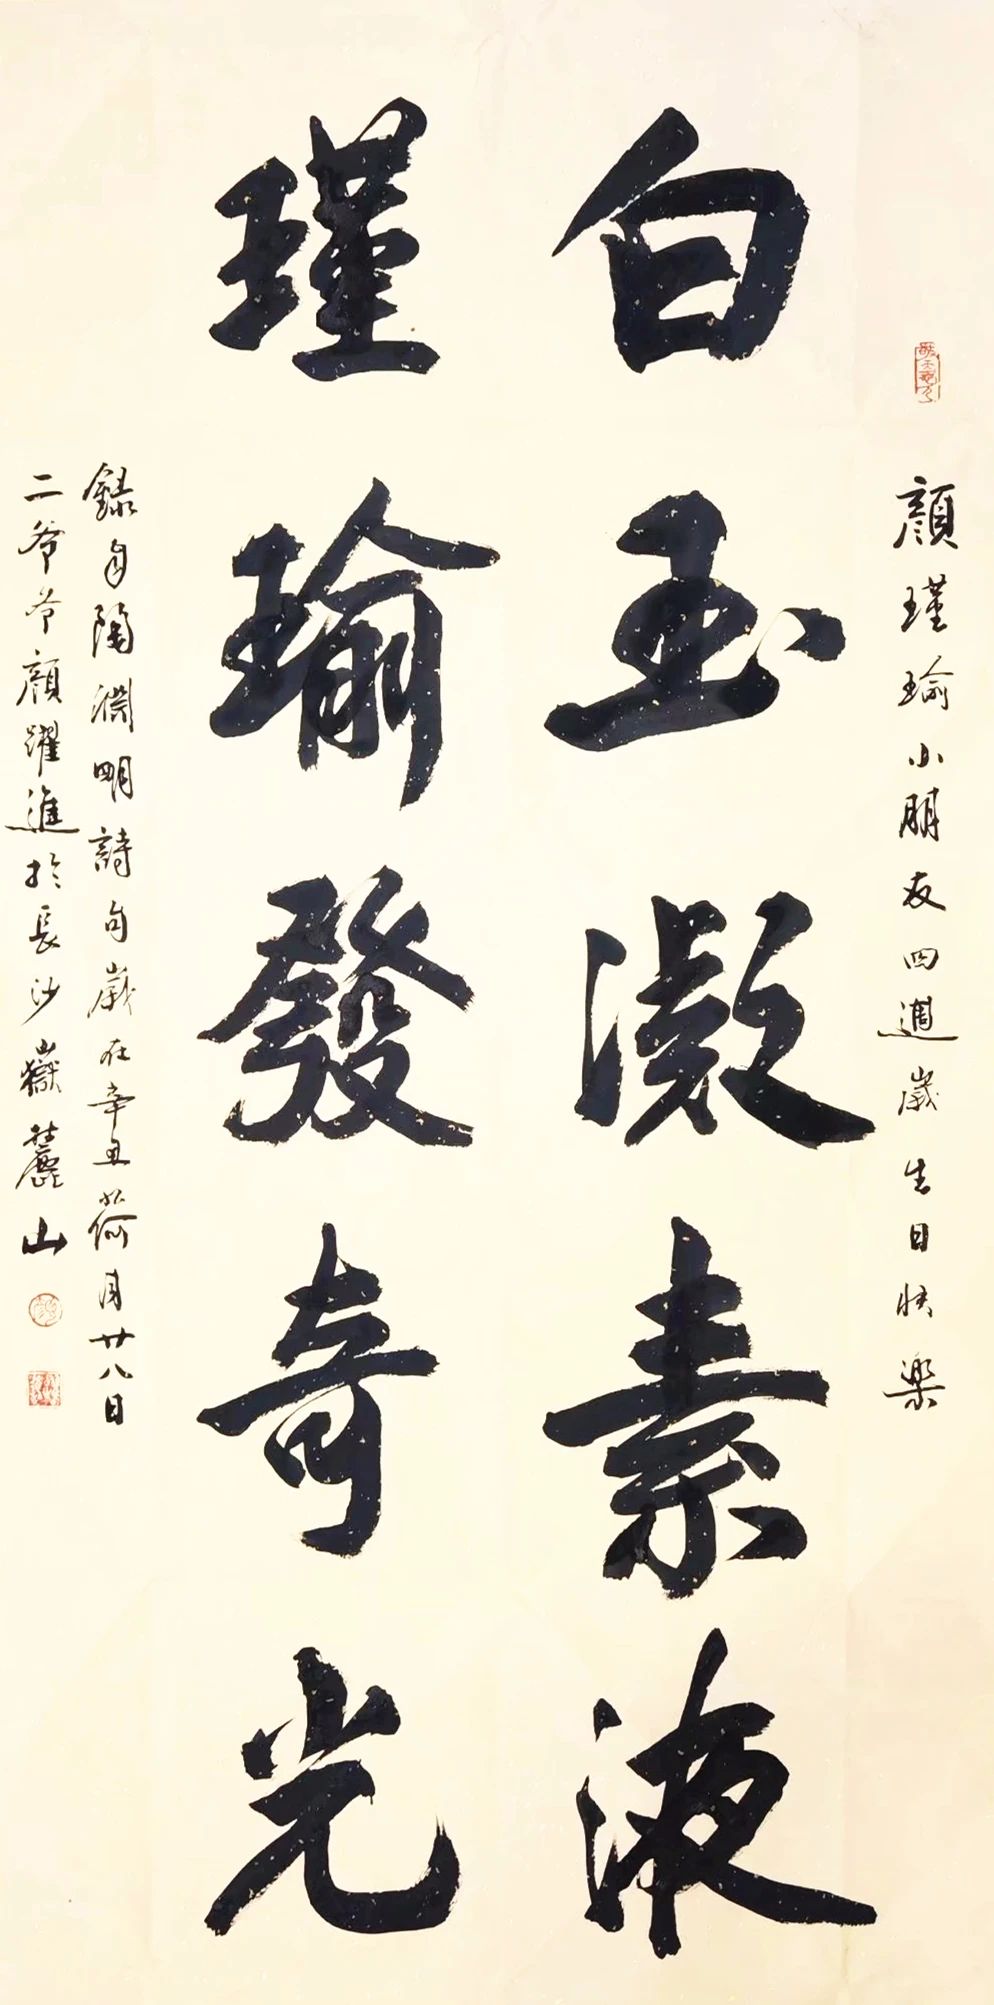 顏瑾瑜小朋友四週歲生日快樂
白玉凝素液
瑾瑜發奇光
錄自陶淵明詩句歲在辛丑荷月廿八日
二爷爷顏躍進於長沙嶽麓山